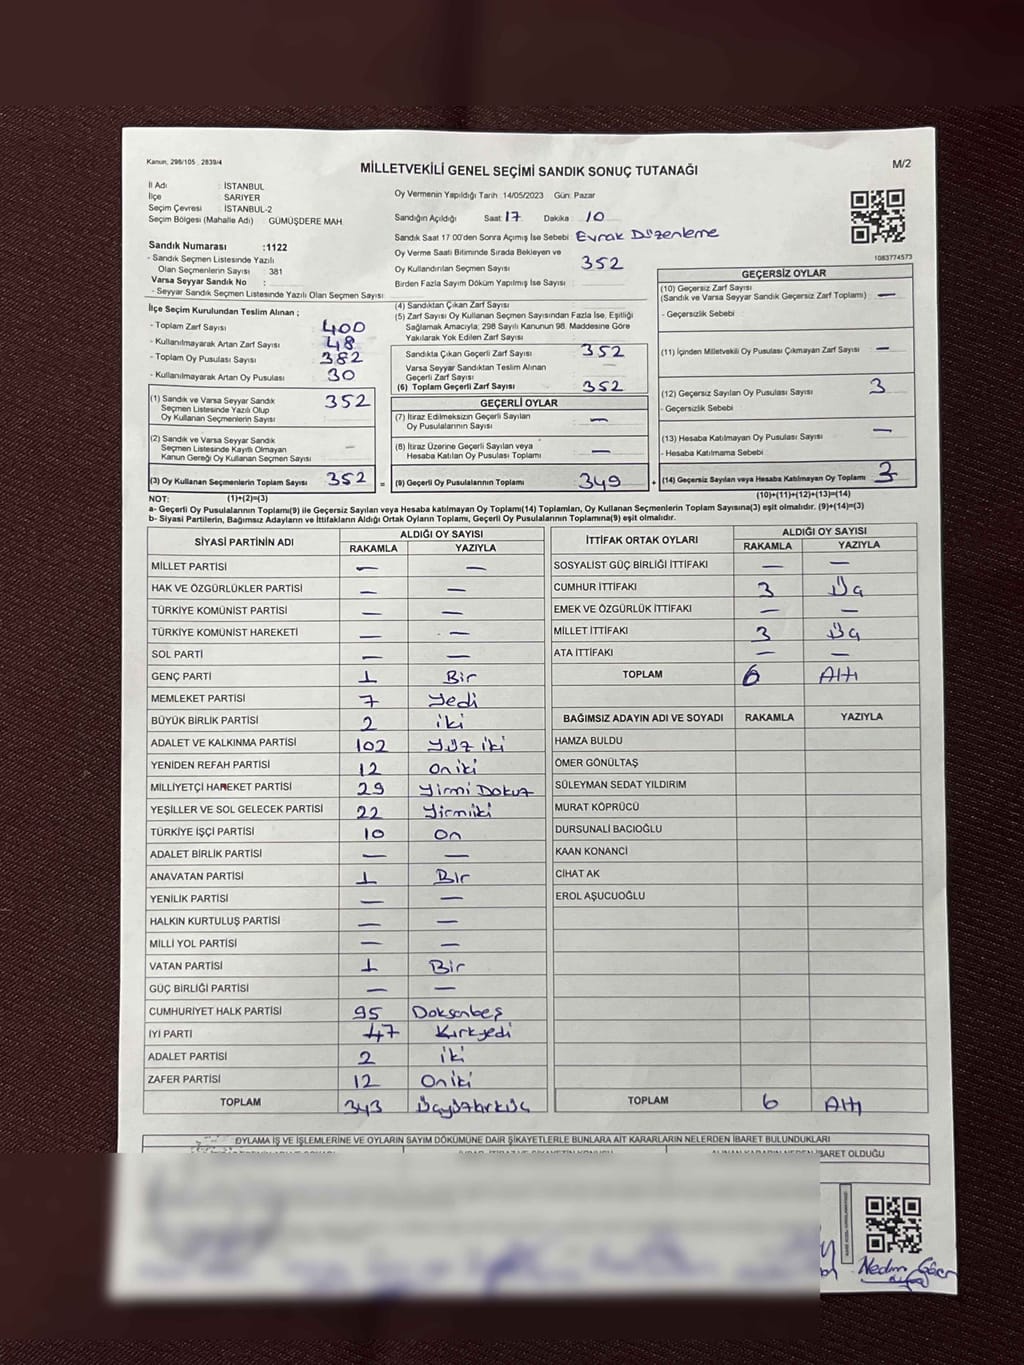 Kanun, 298/105 , 2839/4
MİLLETVEKİLİ GENEL SEÇİMİ SANDIK SONUÇ TUTANAĞI
M/2
İl Adı : İSTANBUL
İlçe SARIYER
Seçim Çevresi : İSTANBUL-2
Seçim Bölgesi (Mahalle Adı) GÜMÜŞDERE MAH.
Oy Vermenin Yapıldığı Tarih 14/05/2023 Gün: Pazar
Sandığın Açıldığı Saat 17 Dakika 10
Sandık Saat 17 00'den Sonra Açımış İse Sebebi Evrak Düzenleme
Oy Verme Saati Bitiminde Sırada Bekleyen ve
Oy Kullandırılan Seçmen Sayısı 352
Birden Fazla Sayım Döküm Yapılmış İse Sayısı :
1083774573
Sandık Numarası :1122
- Sandık Seçmen Listesinde Yazılı
Olan Seçmenlerin Sayısı : 381
Varsa Seyyar Sandık No :
- Seyyar Sandık Seçmen Listesinde Yazılı Olan Seçmen Sayısı :
İlçe Seçim Kurulundan Teslim Alınan ;
- Toplam Zarf Sayısı 400
- Kullanılmayarak Artan Zarf Sayısı : 48
- Toplam Oy Pusulası Sayısı 382
- Kullanılmayarak Artan Oy Pusulası 30
(1) Sandık ve Varsa Seyyar Sandık
Seçmen Listesinde Yazılı Olup
Oy Kullanan Seçmenlerin Sayısı 352
(2) Sandık ve Varsa Seyyar Sandık
Seçmen Listesinde Kayıtlı Olmayan
Kanun Gereği Oy Kullanan Seçmen Sayısı —
(3) Oy Kullanan Seçmenlerin Toplam Sayısı 352 =
(4) Sandıktan Çıkan Zarf Sayısı
(5) Zarf Sayısı Oy Kullanan Seçmen Sayısından Fazla İse, Eşitliği
Sağlamak Amacıyla, 298 Sayılı Kanunun 98. Maddesine Göre
Yakılarak Yok Edilen Zarf Sayısı
Sandıkta Çıkan Geçerli Zarf Sayısı 352
Varsa Seyyar Sandıktan Teslim Alınan
Geçerli Zarf Sayısı —
(6) Toplam Geçerli Zarf Sayısı 352
GEÇERLİ OYLAR
(7) İtiraz Edilmeksizin Geçerli Sayılan
Oy Pusulalarının Sayısı —
(8) İtiraz Üzerine Geçerli Sayılan veya
Hesaba Katılan Oy Pusulası Toplamı —
(9) Geçerli Oy Pusulalarının Toplamı 349 +
GEÇERSİZ OYLAR
(10) Geçersiz Zarf Sayısı
(Sandık ve Varsa Seyyar Sandık Geçersiz Zarf Toplamı) —
- Geçersizlik Sebebi
(11) İçinden Milletvekili Oy Pusulası Çıkmayan Zarf Sayısı —
(12) Geçersiz Sayılan Oy Pusulası Sayısı 3
- Geçersizlik Sebebi
(13) Hesaba Katılmayan Oy Pusulası Sayısı —
- Hesaba Katılmama Sebebi
(14) Geçersiz Sayılan veya Hesaba Katılmayan Oy Toplamı 3
NOT: (1)+(2)=(3) (10)+(11)+(12)+(13)=(14)
a- Geçerli Oy Pusulalarının Toplamı(9) ile Geçersiz Sayılan veya Hesaba katılmayan Oy Toplamı(14) Toplamları, Oy Kullanan Seçmenlerin Toplam Sayısına(3) eşit olmalıdır. (9)+(14)=(3)
b- Siyasi Partilerin, Bağımsız Adayların ve İttifakların Aldığı Ortak Oyların Toplamı, Geçerli Oy Pusulalarının Toplamına(9) eşit olmalıdır.
SİYASİ PARTİNİN ADI ALDIĞI OY SAYISI
RAKAMLA YAZIYLA
MİLLET PARTİSİ — —
HAK VE ÖZGÜRLÜKLER PARTİSİ — —
TÜRKİYE KOMÜNİST PARTİSİ — —
TÜRKİYE KOMÜNİST HAREKETİ — —
SOL PARTİ — —
GENÇ PARTİ 1 Bir
MEMLEKET PARTİSİ 7 Yedi
BÜYÜK BİRLİK PARTİSİ 2 iki
ADALET VE KALKINMA PARTİSİ 102 Yüz iki
YENİDEN REFAH PARTİSİ 12 oniki
MİLLİYETÇİ HAREKET PARTİSİ 29 Yirmi Dokuz
YEŞİLLER VE SOL GELECEK PARTİSİ 22 Yirmiiki
TÜRKİYE İŞÇİ PARTİSİ 10 on
ADALET BİRLİK PARTİSİ — —
ANAVATAN PARTİSİ 1 Bir
YENİLİK PARTİSİ — —
HALKIN KURTULUŞ PARTİSİ — —
MİLLİ YOL PARTİSİ — —
VATAN PARTİSİ 1 Bir
GÜÇ BİRLİĞİ PARTİSİ — —
CUMHURİYET HALK PARTİSİ 95 Doksanbeş
İYİ PARTİ 47 Kırkyedi
ADALET PARTİSİ 2 iki
ZAFER PARTİSİ 12 Oniki
TOPLAM 343 Üçyüzkırküç
İTTİFAK ORTAK OYLARI ALDIĞI OY SAYISI
RAKAMLA YAZIYLA
SOSYALİST GÜÇ BİRLİĞİ İTTİFAKI — —
CUMHUR İTTİFAKI 3 Üç
EMEK VE ÖZGÜRLÜK İTTİFAKI — —
MİLLET İTTİFAKI 3 Üç
ATA İTTİFAKI — —
TOPLAM 6 Altı
BAĞIMSIZ ADAYIN ADI VE SOYADI RAKAMLA YAZIYLA
HAMZA BULDU
ÖMER GÖNÜLTAŞ
SÜLEYMAN SEDAT YILDIRIM
MURAT KÖPRÜCÜ
DURSUNALİ BACIOĞLU
KAAN KONANCİ
CİHAT AK
EROL AŞUCUOĞLU
TOPLAM 6 Altı
OYLAMA İŞ VE İŞLEMLERİNE VE OYLARIN SAYIM DÖKÜMÜNE DAİR ŞİKAYETLERLE BUNLARA AİT KARARLARIN NELERDEN İBARET BULUNDUKLARI
İBARET OLDUĞU
Nedim